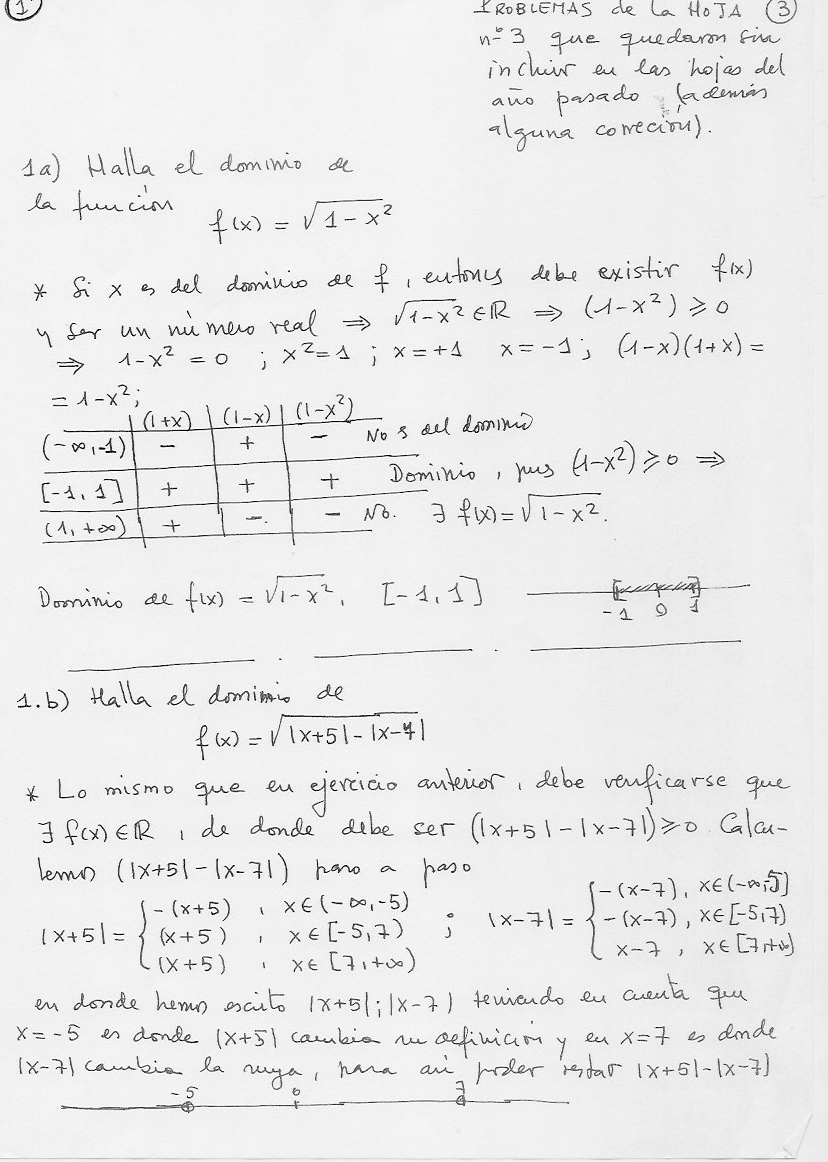 1
PROBLEMAS de la HOJA 3
nº 3 que quedaron sin
incluir en las hojas del
año pasado (además
alguna correción).
1a) Halla el dominio de
la función f(x) = √1-x²
* Si x es del dominio de f, entonces debe existir f(x)
y ser un número real ⇒ √1-x² ∈ ℝ ⇒ (1-x²) ⩾ 0
⇒ 1-x² = 0 ; x²=1 ; x=+1 x=-1; (1-x)(1+x) =
= 1-x²;
(1+x) (1-x) (1-x²)
(-∞,-1) - + - No es del dominio
[-1, 1] + + + Dominio, pues (1-x²) ⩾ 0 ⇒
(1, +∞) + - - No. ∃ f(x) = √1-x².
Dominio de f(x) = √1-x², [-1, 1]
-1 0 1
1.b) Halla el dominio de
f(x) = √|x+5|-|x-7|
* Lo mismo que en ejercicio anterior, debe verificarse que
∃ f(x) ∈ ℝ, de donde debe ser (|x+5|-|x-7|) ⩾ 0. Calcu-
lemos (|x+5|-|x-7|) paso a paso
-(x+5) , x∈(-∞,-5) -(x-7), x∈(-∞,5]
|x+5| = (x+5) , x∈[-5,7) ; |x-7| = -(x-7), x∈[-5,7)
(x+5) , x∈[7,+∞) x-7 , x∈[7,+∞)
en donde hemos escrito |x+5|;|x-7| teniendo en cuenta que
x=-5 es donde |x+5| cambia su definición y en x=7 es donde
|x-7| cambia la suya, para así poder restar |x+5|-|x-7|
-5 0 7